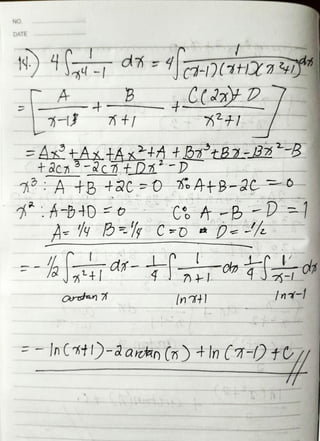 NO.
DATE
14.) 4∫ 1/(x⁴-1) dx = 4∫ 1/((x-1)(x+1)(x²+1)) dx
= [ A/(x-1) + B/(x+1) + (C(2x)+D)/(x²+1) ]
= Ax³+Ax+Ax²+A+Bx³+Bx-Bx²-B
+2cx³-2cx+Dx²-D
x³: A+B+2C=0 x: A+B-2C=0
x²: A-B+D=0 C: A-B-D=1
A=1/4 B=-1/4 C=0 D=-1/2
= -1/2∫ 1/(x²+1) dx - 1/4∫ 1/(x+1) dx 1/4∫ 1/(x-1) dx
arctan x ln x+1 ln x-1
= -ln(x+1)-2arctan(x)+ln(x-1)+C//